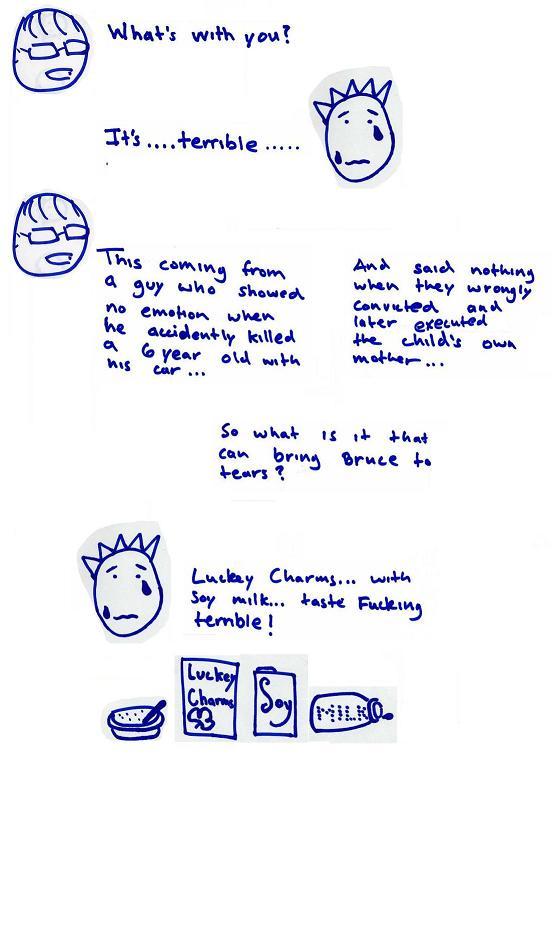 What's with you?
It's....terrible.....
This coming from
a guy who showed
no emotion when
he accidently killed
a 6 year old with
his car...
And said nothing
when they wrongly
convicted and
later executed
the child's own
mother...
So what is it that
can bring Bruce to
tears?
Luckey Charms... with
Soy milk... taste Fucking
terrible!
Luckey
Charms
Soy
MILK